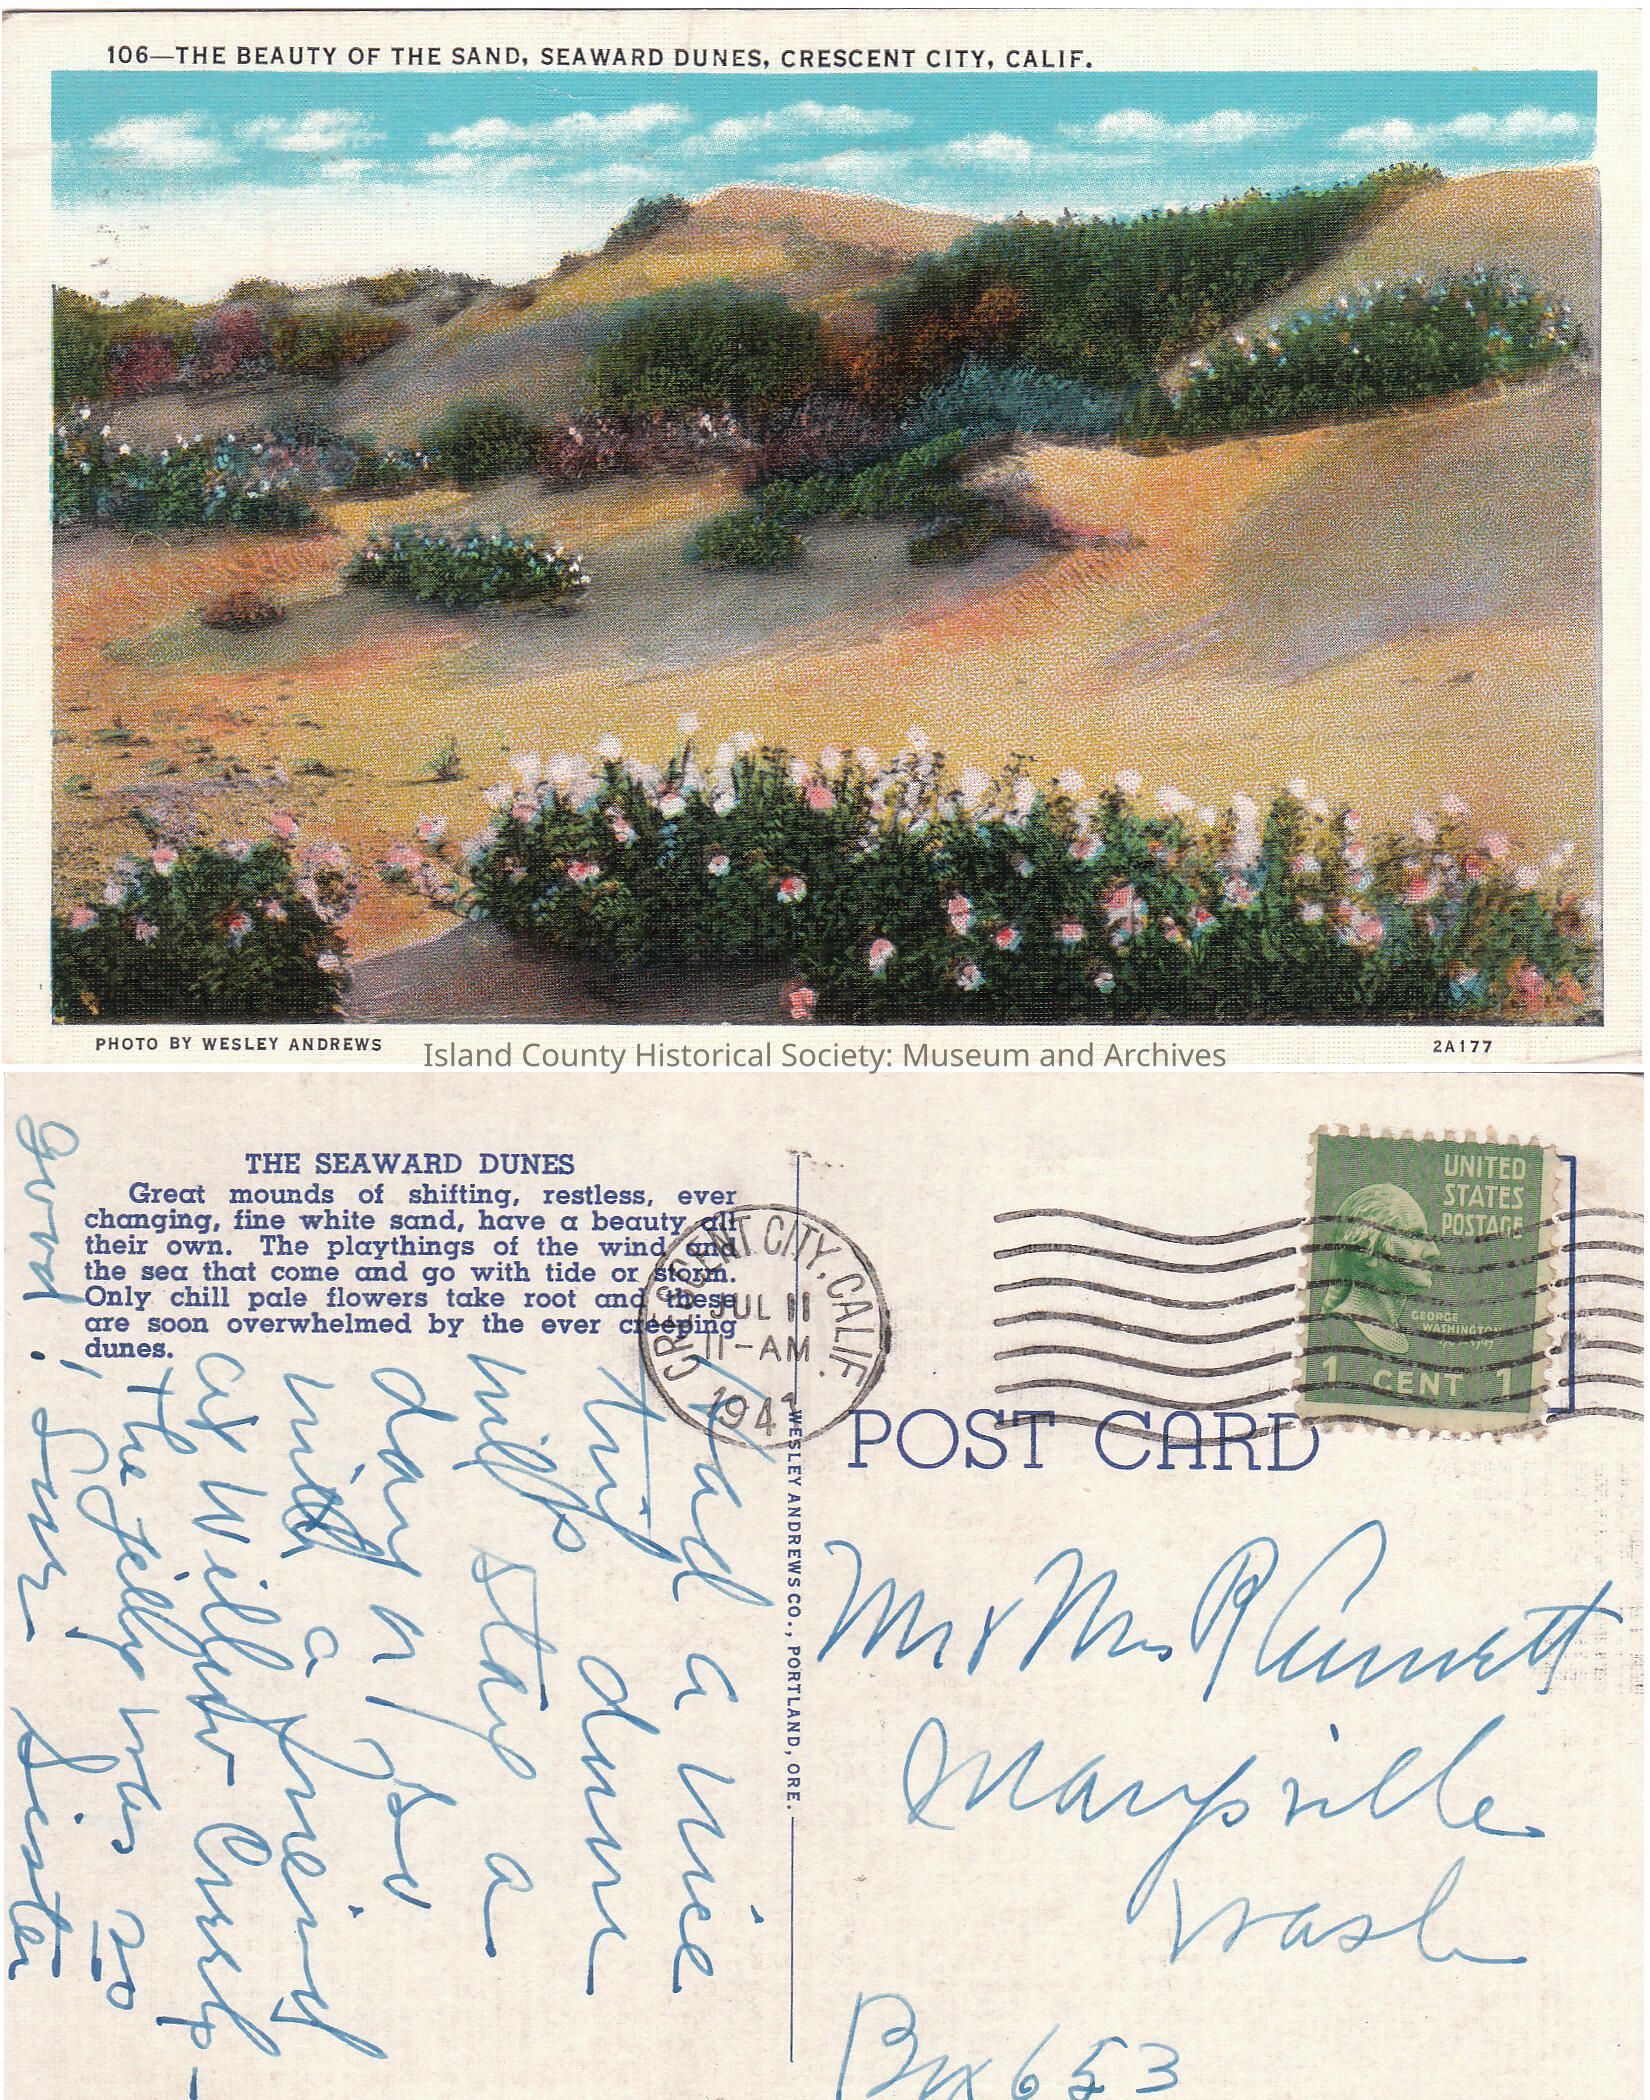 106—THE BEAUTY OF THE SAND, SEAWARD DUNES, CRESCENT CITY, CALIF.
PHOTO BY WESLEY ANDREWS
2A177
Island County Historical Society: Museum and Archives
THE SEAWARD DUNES
Great mounds of shifting, restless, ever
changing, fine white sand, have a beauty all
their own. The playthings of the wind and
the sea that come and go with tide or storm.
Only chill pale flowers take root and these
are soon overwhelmed by the ever creeping
dunes.
CRESCENT CITY, CALIF.
JUL 11
11-AM
1941
UNITED
STATES
POSTAGE
GEORGE
WASHINGTON
1 CENT 1
POST CARD
WESLEY ANDREWS CO., PORTLAND, ORE.
Had a nice
trip down
will stay a
day or so
with a friend
at Wilbur Creek-
the Jelly was so
good! Love Sister
Mr & Mrs R
Marysville
Wash
Box 653